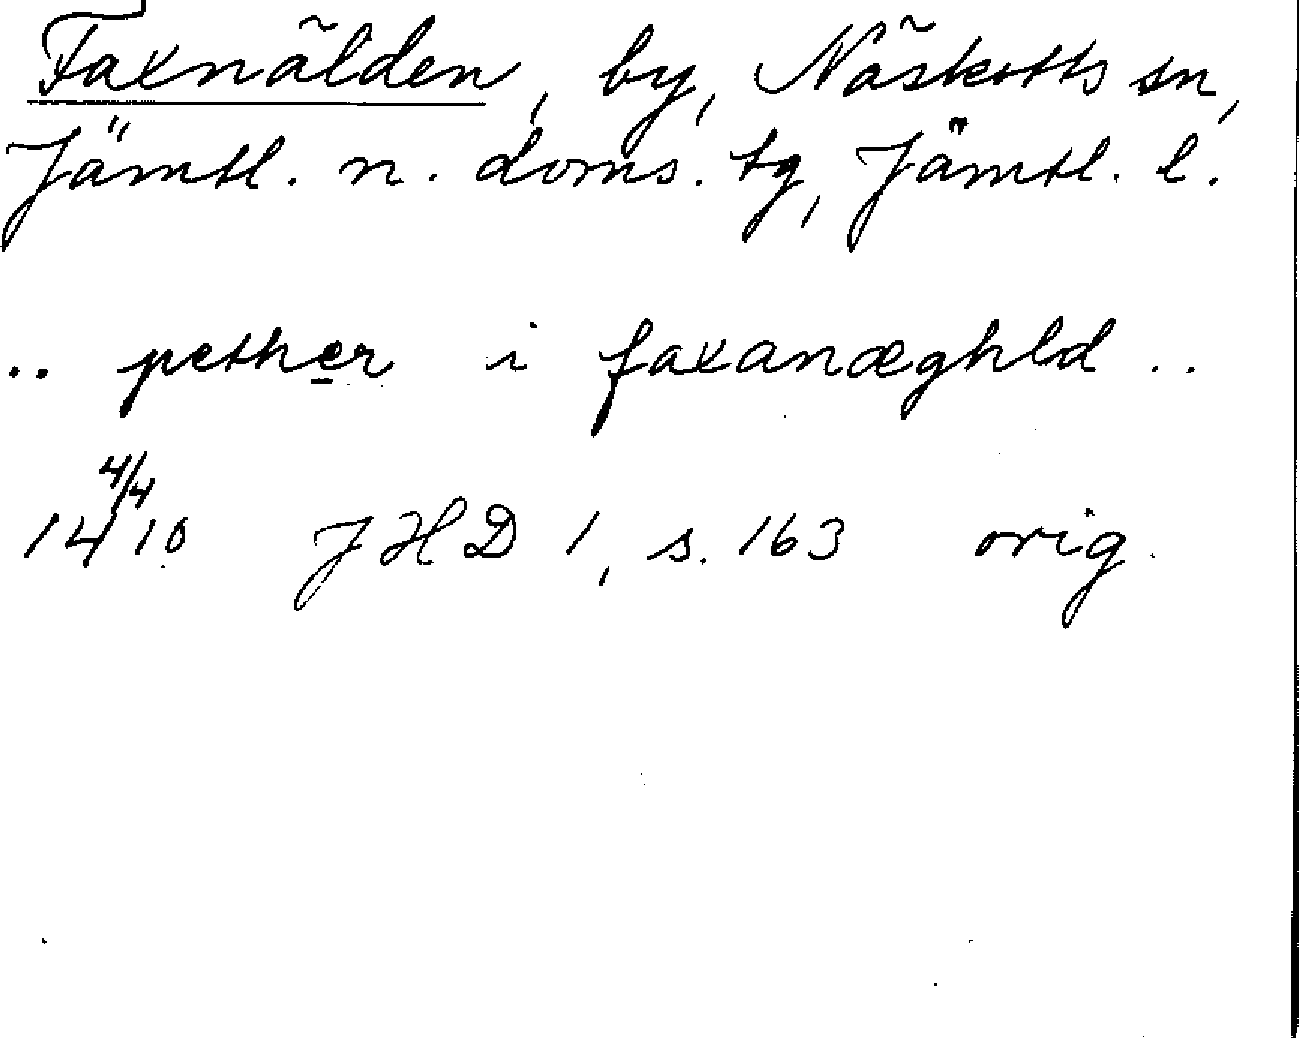 Faxnälden, by, Näskotts sn,
Jämtl. n. doms. tg, Jämtl. l.
.. pether i faxanæghld ..
14 4/4 10 JHD 1, s. 163 orig.